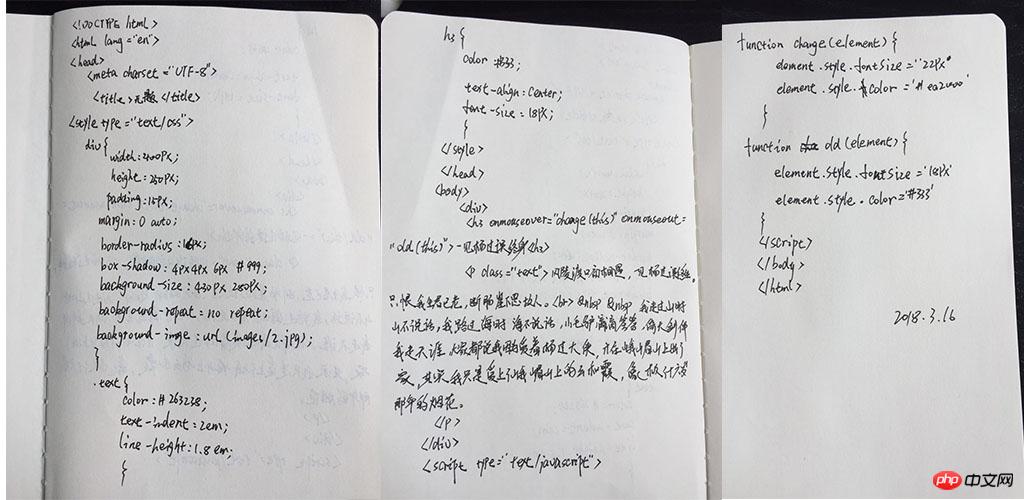 <!DOCTYPE html>
<html lang="en">
<head>
<meta charset="UTF-8">
<title>无题</title>
<style type="text/css">
div{
width:400px;
height:250px;
padding:15px;
margin:0 auto;
border-radius:16px;
box-shadow:4px 4px 6px #999;
background-size:430px 280px;
background-repeat=no repeat;
background-imge:url(images/2.jpg);
}
.text{
color:#263238;
text-indent:2em;
line-height:1.8em;
}
h3{
color:#333;
text-align:Center;
font-size:18px;
}
</style>
</head>
<body>
<div>
<h3 onmouseover="change(this)" onmouseout=
"old(this)">一见杨过误终身<h3>
<p class="text">风陵渡口初相遇,一见杨过误终
只恨我生君已老,断肠崖下思故人。<br>&nbsp &nbsp 我走过山时
山不说话,我路过海时 海不说话,小毛驴滴滴答答,倚天剑伴
我走天涯。大家都说我因爱着杨过大侠,才在峨嵋山上出了
家,其实我只是爱上了峨嵋山上的云和霞,像极了十六岁
那年的烟花。
</p>
</div>
<script type="text/javascript">
function change(element){
element.style.fontSize="22px"
element.style.color='#ea2000'
}
function old(element){
element.style.fontSize='18px'
element.style.color='#333'
}
</script>
</body>
</html>
2018.3.16
php中文网